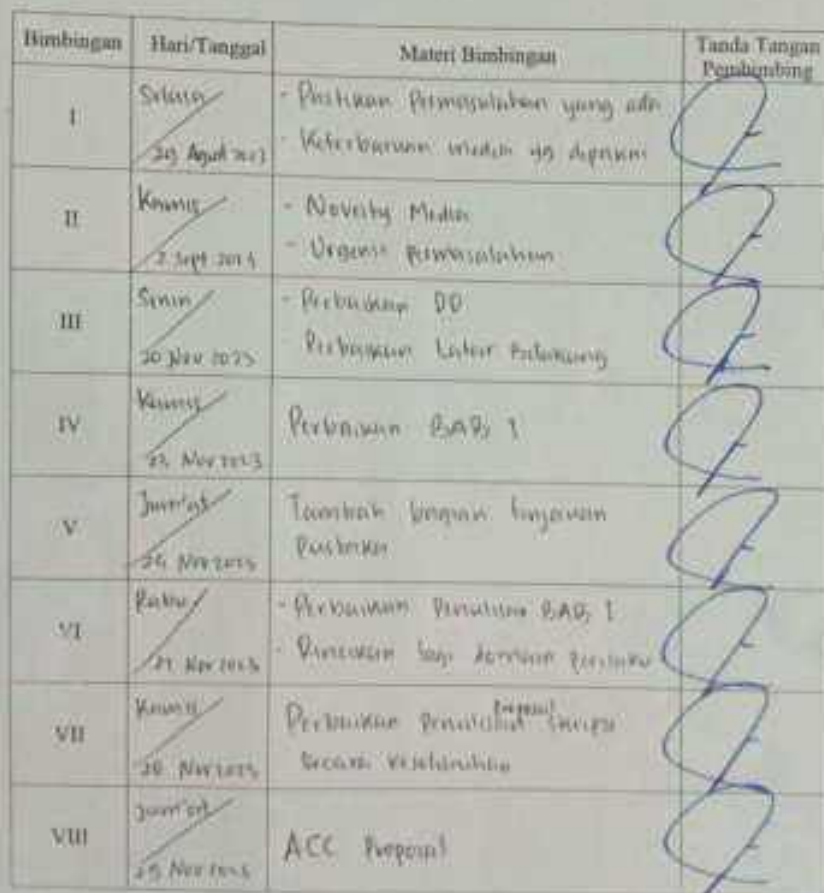 Bimbingan Hari/Tanggal Materi Bimbingan Tanda Tangan
Pembimbing
I
Selasa
29 Agust 2023
- Pastikan Permasalahan yang ada
- Keterbaruan media yg dipakai
II
Kamis
Sept
- Novelty Media
- Urgensi permasalahan
III
Senin
20 Nov 2023
- Perbaikan DO
Perbaikan Latar Belakang
IV
Kamis
Nov 2023
Perbaikan BAB I
V
Jum'at
Nov 2023
Tambah bagian tinjauan
Pustaka
VI
Rabu
Nov 2023
- Perbaikan Penulisan BAB I
- bagi domain perilaku
VII
Kamis
Nov 2023
Proposal
Perbaikan Penulisan Skripsi
secara keseluruhan
VIII
Jum'at
Nov
ACC Proposal